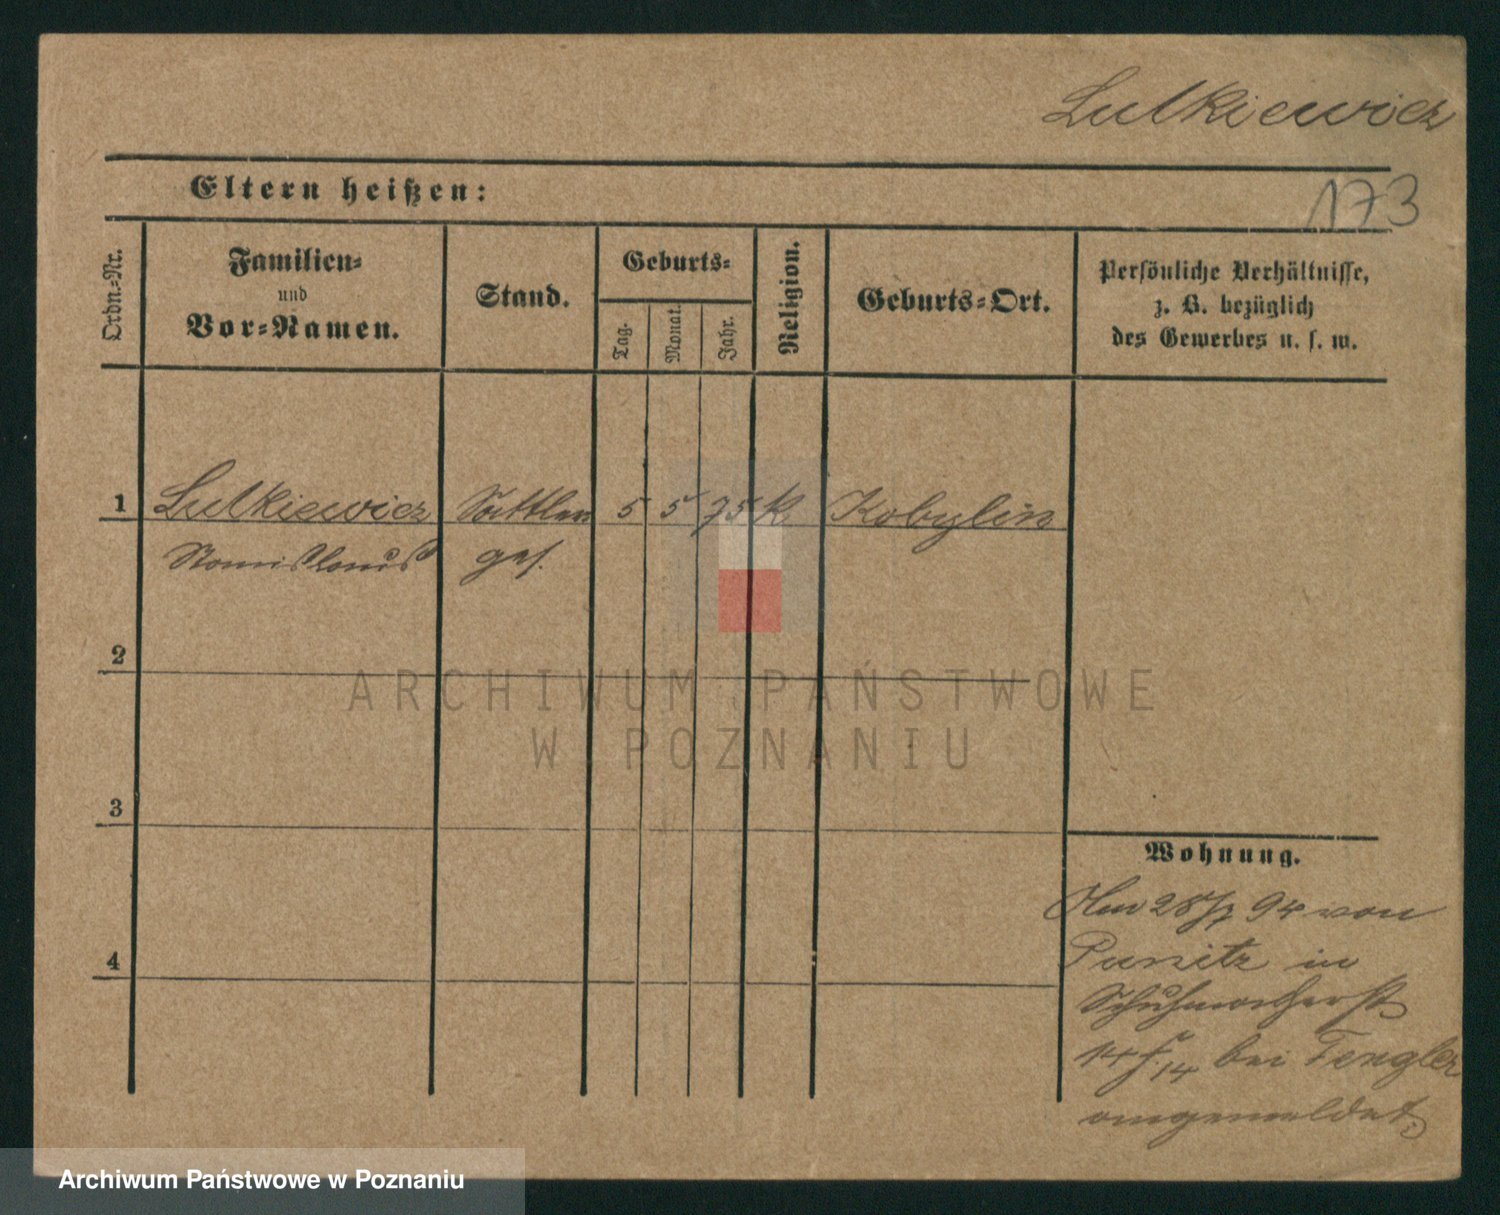 Lulkiewicz
Eltern heißen:
173
Ordn.-Nr.
Familien-
und
Vor-Namen.
Stand.
Geburts-
Tag.
Monat.
Jahr.
Religion.
Geburts-Ort.
Persönliche Verhältnisse,
z. B. bezüglich
des Gewerbes u. s. w.
1 Lulkiewicz Sattler 5 5 75 k. Kobylin
Stanislaus ges.
2
ARCHIWUM PAŃSTWOWE
W POZNANIU
3
Wohnung.
Am 28/7 94 von
Punitz in
Schuhmacherst
14 bei Tengler
angemeldet
4
Archiwum Państwowe w Poznaniu